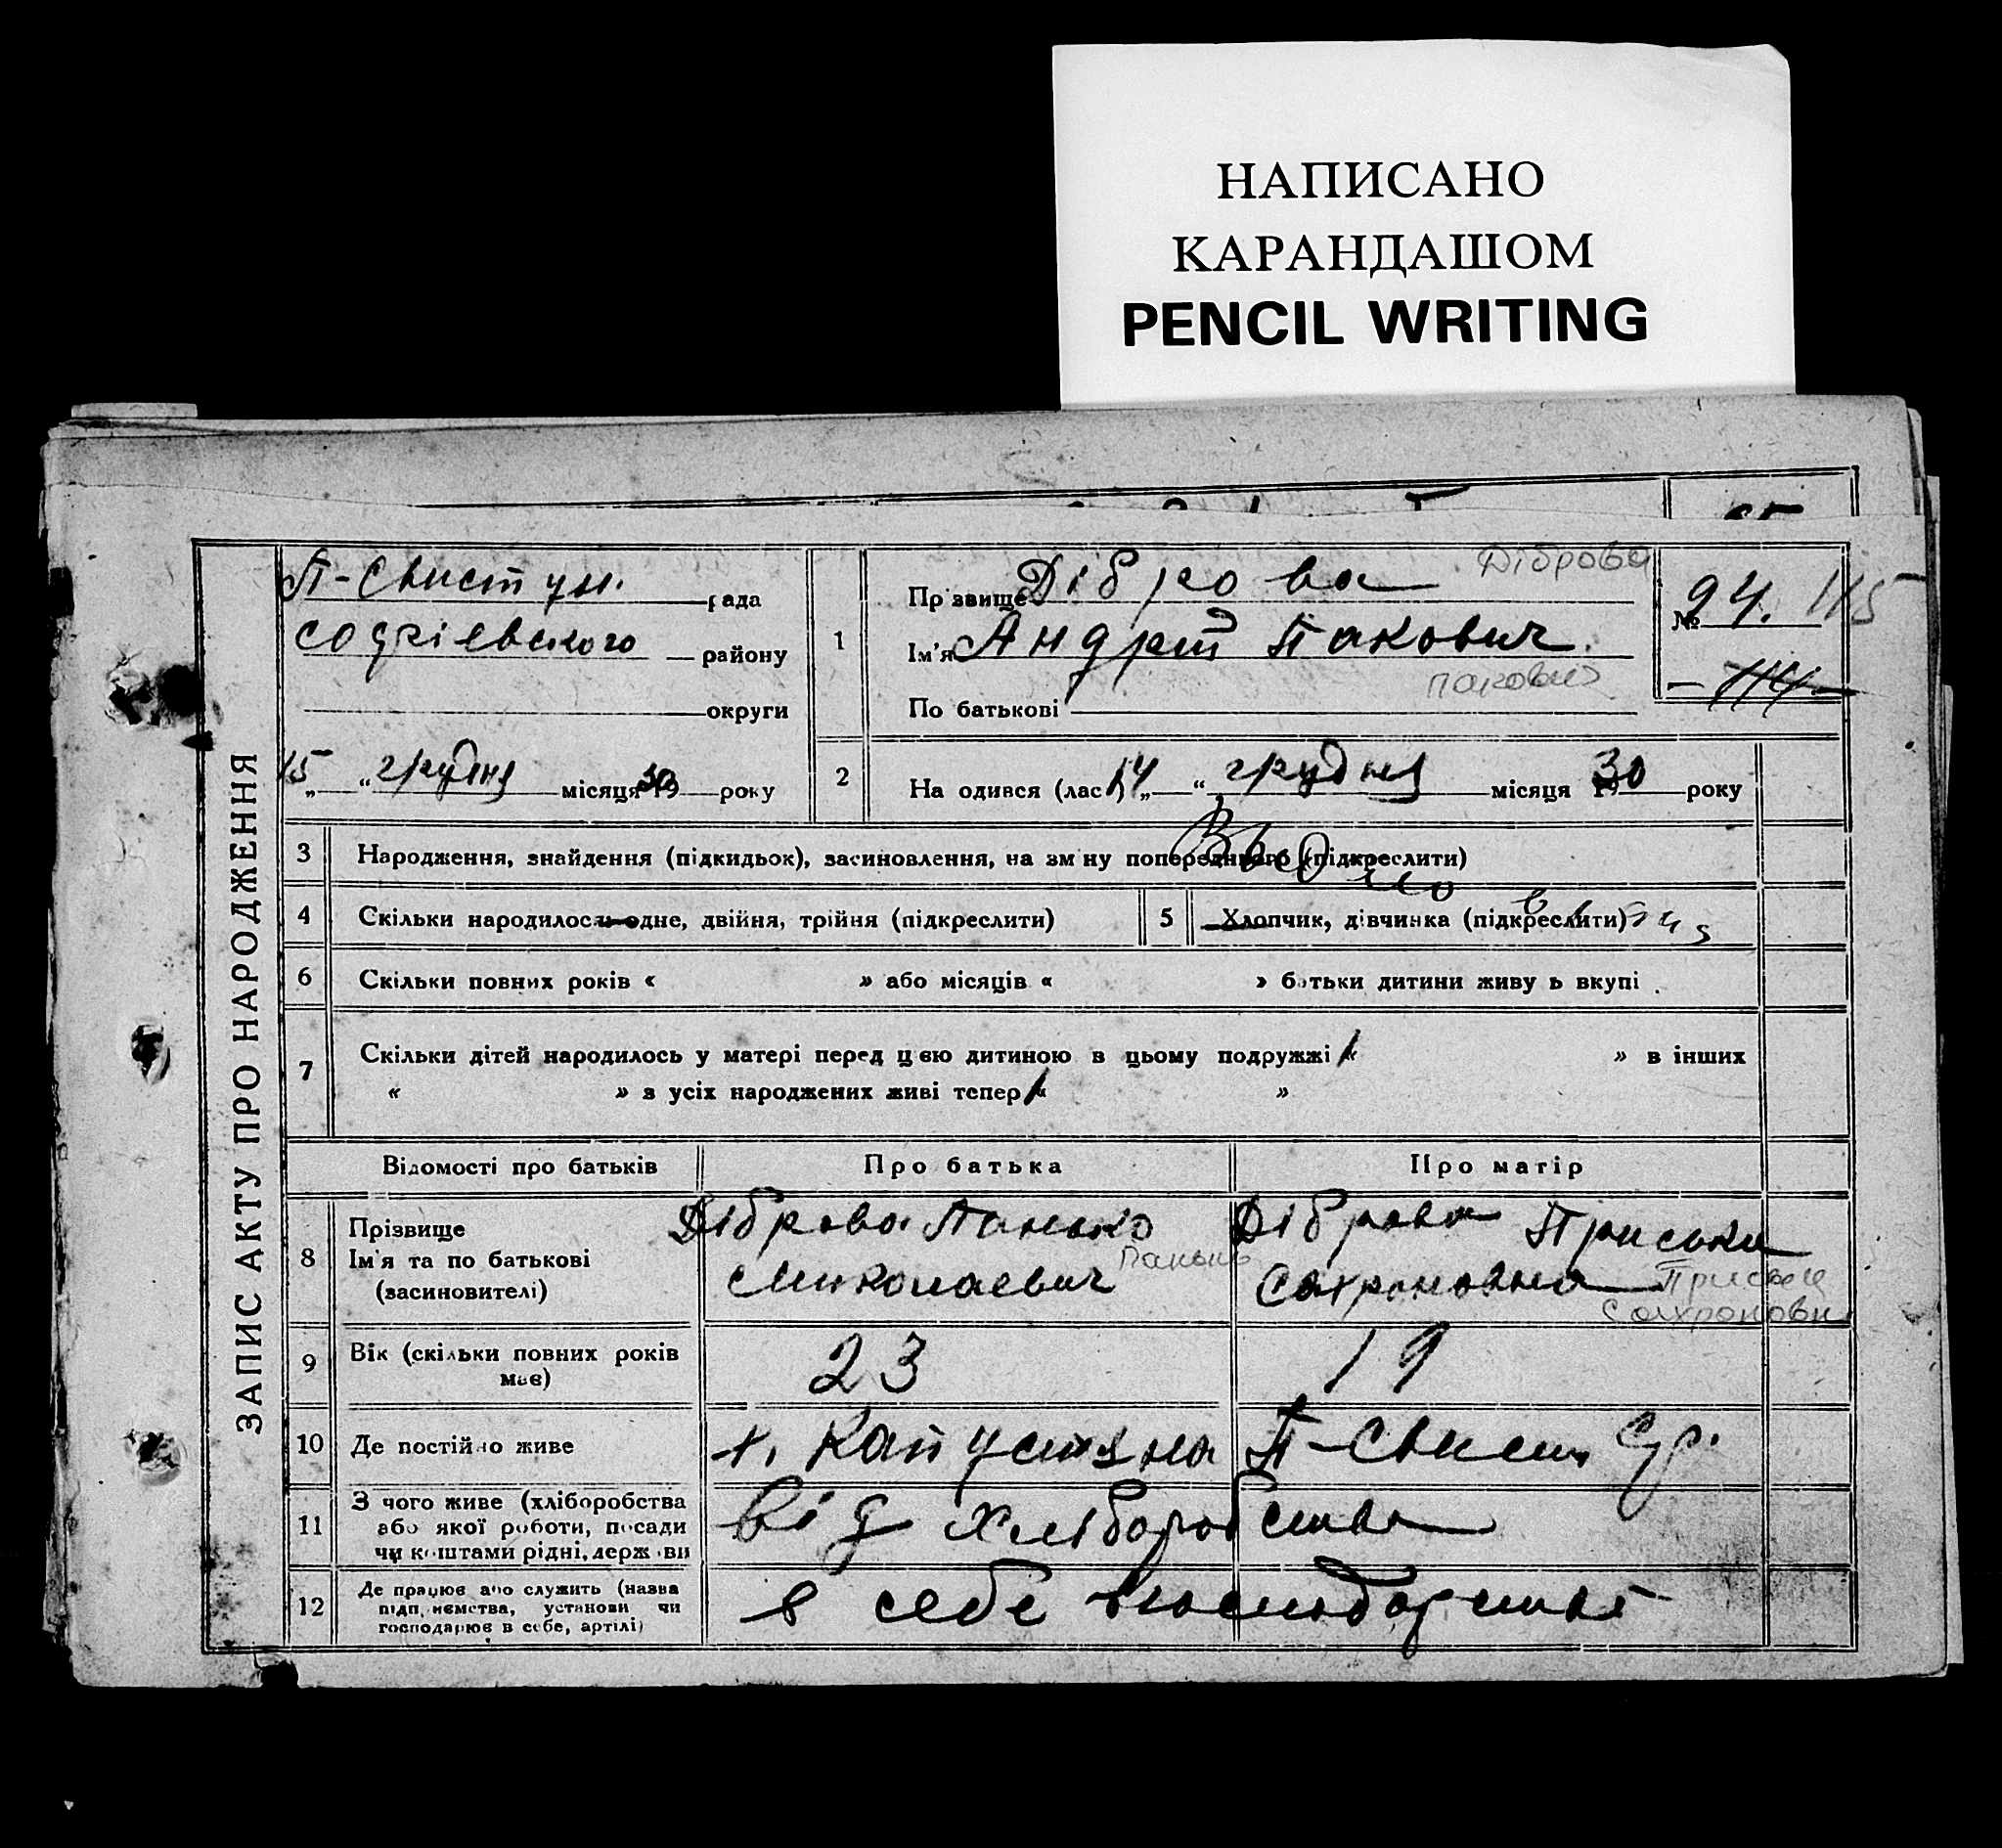 НАПИСАНО
КАРАНДАШОМ
PENCIL WRITING
ЗАПИС АКТУ ПРО НАРОДЖЕННЯ
П-Свистун. рада
района
округи
15 „ “ грудня місяця 1930 року
1
Прізвище Діброва Діброва
Ім'я Андрій Пакович.
По батькові пакович
№ 94. 115
- 114 -
2
На одився (лас) 14 „ “ грудня місяця 1930 року
3 Народження, знайдення (підкидьок), засиновлення, на зміну попереднього (підкреслити)
4 Скільки народилось: одне, двійня, трійня (підкреслити)
5 Хлопчик, дівчинка (підкреслити)
6 Скільки повних років « » або місяців « » батьки дитини живуть вкупі
7 Скільки дітей народилось у матері перед цією дитиною в цьому подружжі « » в інших
« » з усіх народжених живі тепер « »
Відомості про батьків Про батька Про матір
8 Прізвище
Ім'я та по батькові
(засиновителі)
Діброва Панько
Миколаевич
Діброва Приська
Сахроновна
Сахроновн
9 Вік (скільки повних років
має)
23 19
10 Де постійно живе х. Капустяна П-Свист.
11 З чого живе (хліборобства
або якої роботи, посади
чи коштами рідні, держави
від хліборобства
12 Де працює або служить (назва
підприємства, установи чи
господарює в себе, артілі)
в себе в господарстві